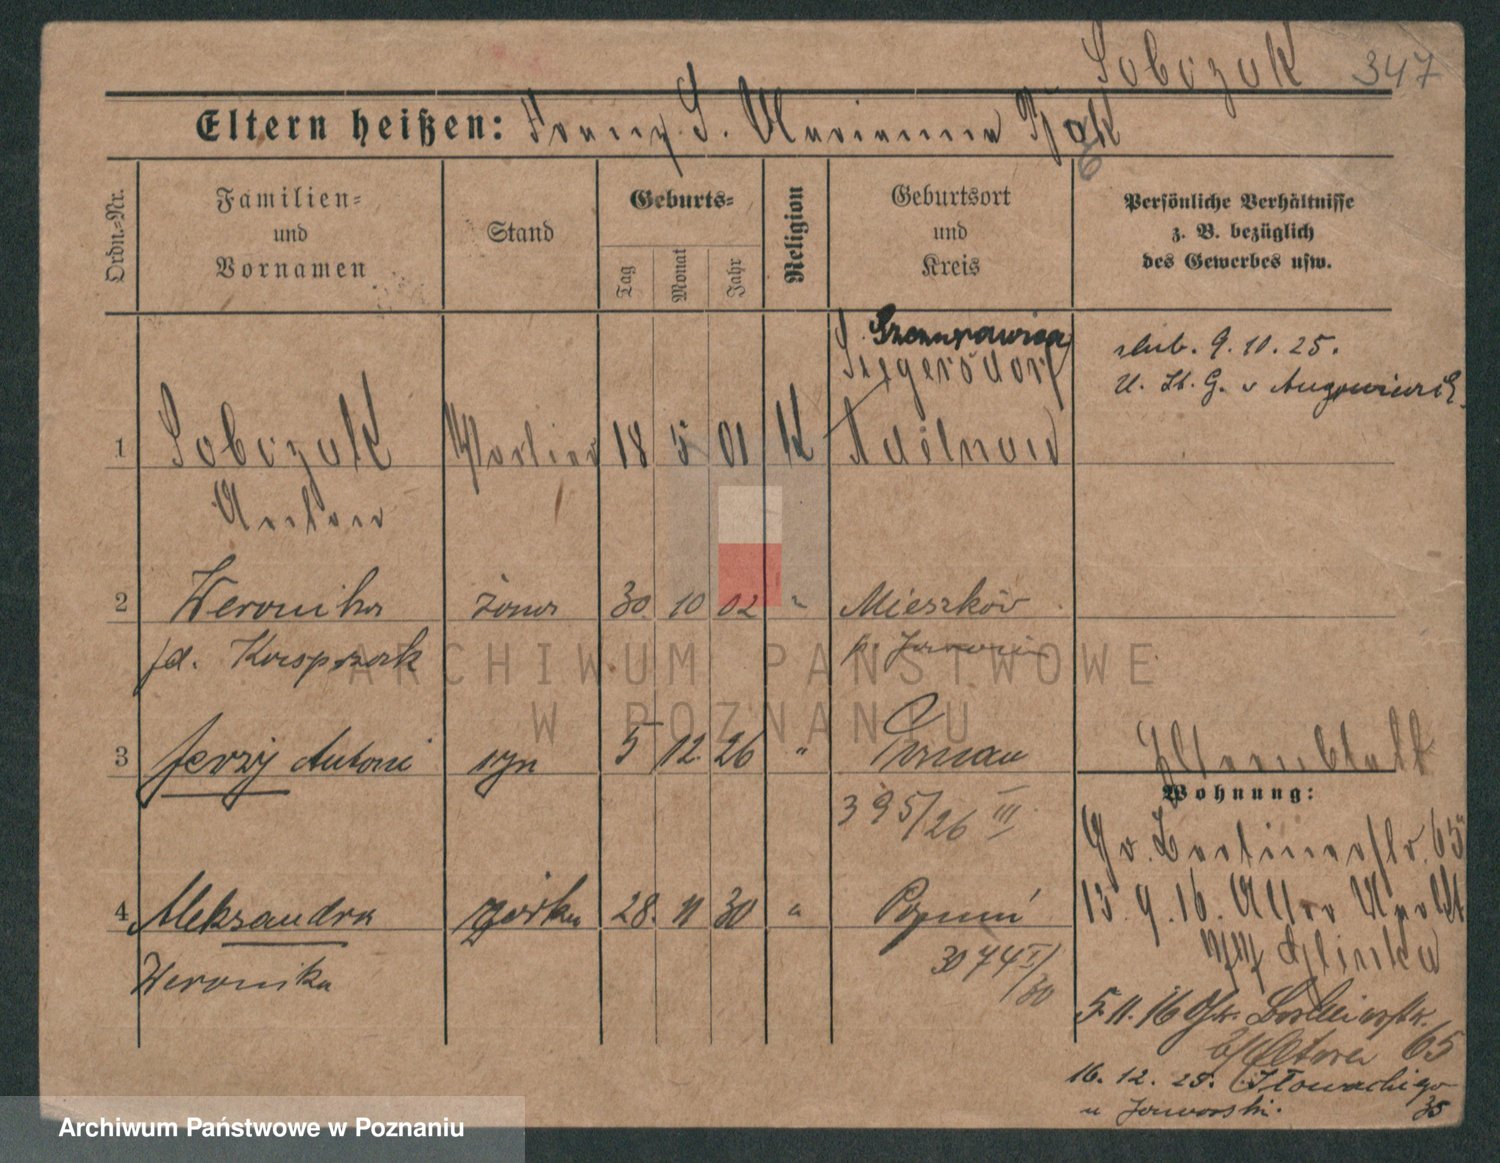 Sobczak 347
Eltern heißen: Franz S. Marianna
Ordn.-Nr.
Familien-
und
Vornamen
Stand
Geburts-
Tag
Monat
Jahr
Religion
Geburtsort
und
Kreis
Persönliche Verhältnisse
z. B. bezüglich
des Gewerbes usw.
Szczurawice
Siegersdorf
ślub. 9.10.25.
U. St. G. v
1 Sobczak 18 5 01 K Adelnau
Anton
2 Weronika żona 30 10 02 " Mieszków
fd. Kasprzak p. Jarocin
3 Jerzy Antoni syn 5 12. 26 "
395/26 III
Elternblatt
Wohnung:
4 Aleksandra córka 28. 11 30 " Poznań
Weronika
3074 I/30
65
15.9.16.
Glinka
5.11.16
65
16.12.25. Słowackiego
u Jaworski. 35
ARCHIWUM PAŃSTWOWE
W POZNANIU
Archiwum Państwowe w Poznaniu